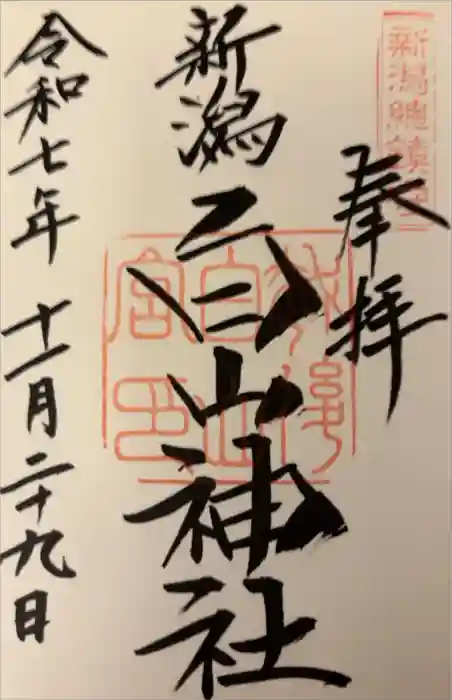 新潟總鎮守
奉拝
新潟白山神社
令和七年 十一月二十九日